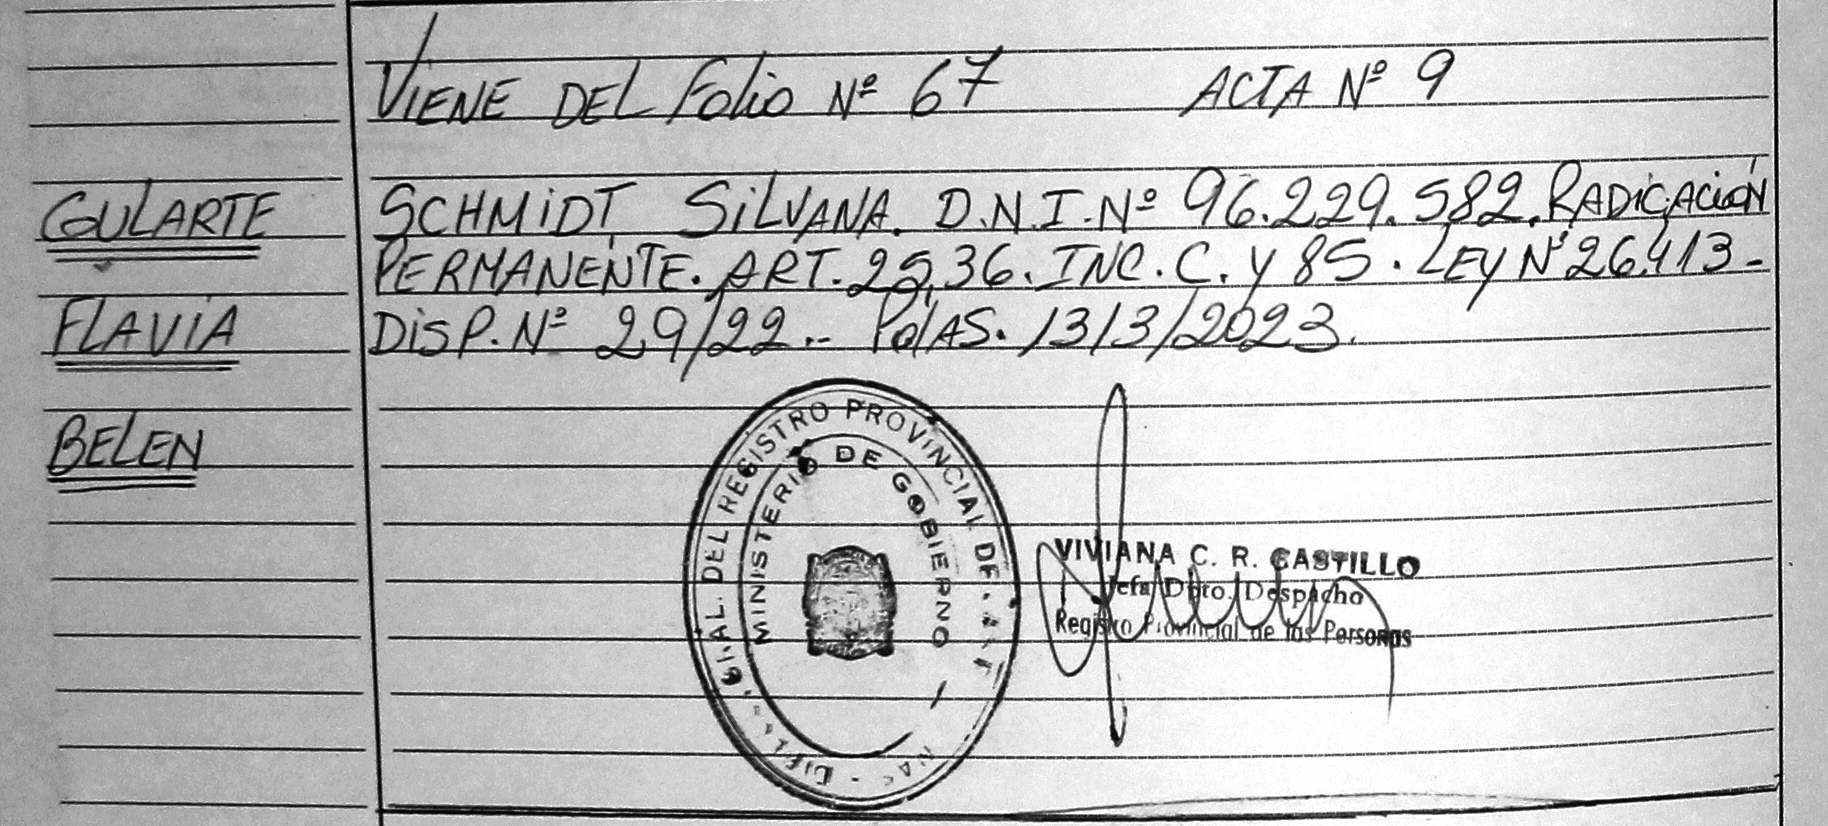 VIENE DEL Folio Nº 67 ACTA Nº 9
GULARTE
FLAVIA
BELEN
SCHMIDT SILVANA. D.N.I. Nº 96.229.582. RADICACIÓN
PERMANENTE. ART. 25,36. INC. C. Y 85. LEY Nº 26.413-
DISP. Nº 29/22.- PdAS. 13/3/2023.
DEL REGISTRO PROVINCIAL DE
MINISTERIO DE GOBIERNO
VIVIANA C. R. CASTILLO
Jefa Dpto. Despacho
Registro Provincial de las Personas